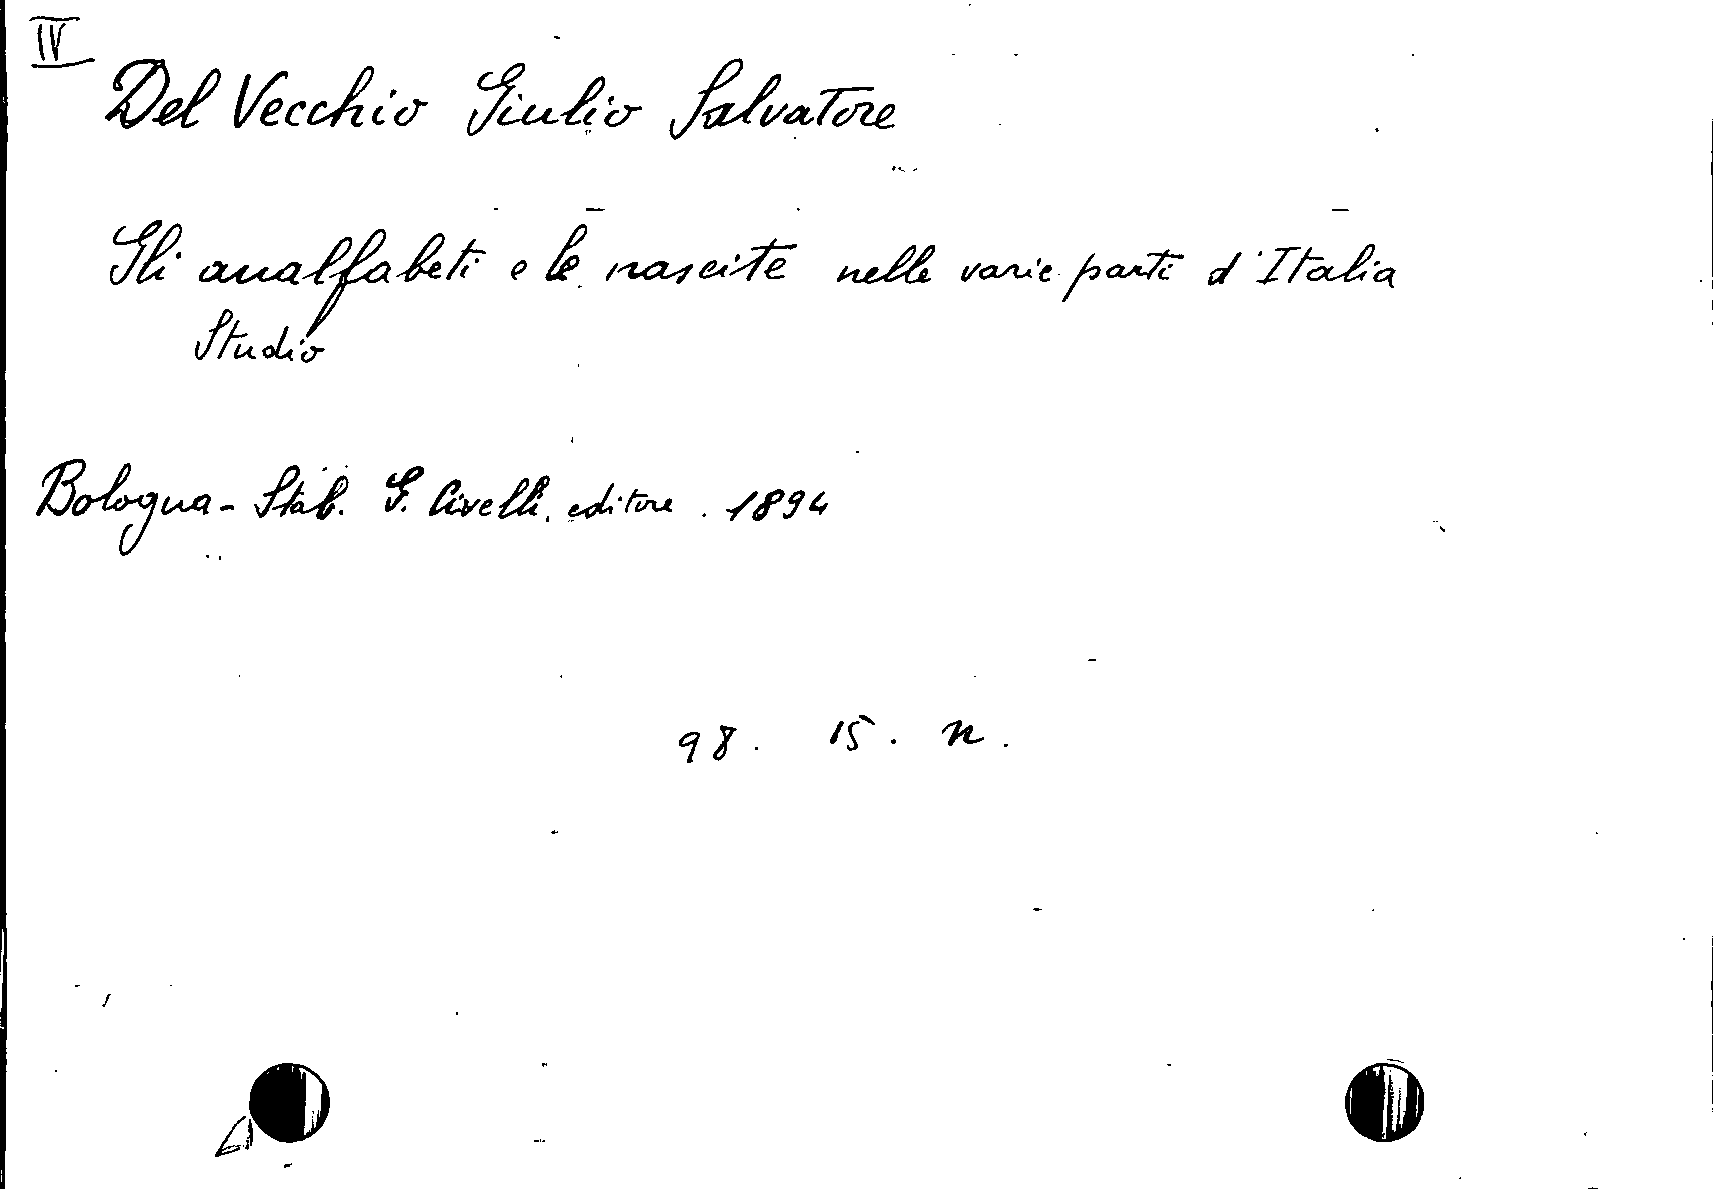 IV
Del Vecchio Giulio Salvatore
Gli analfabeti e le nascite nelle varie parti d'Italia
Studio
Bologna - Stab. G. Civelli. editore. 1894
98. 15. n.